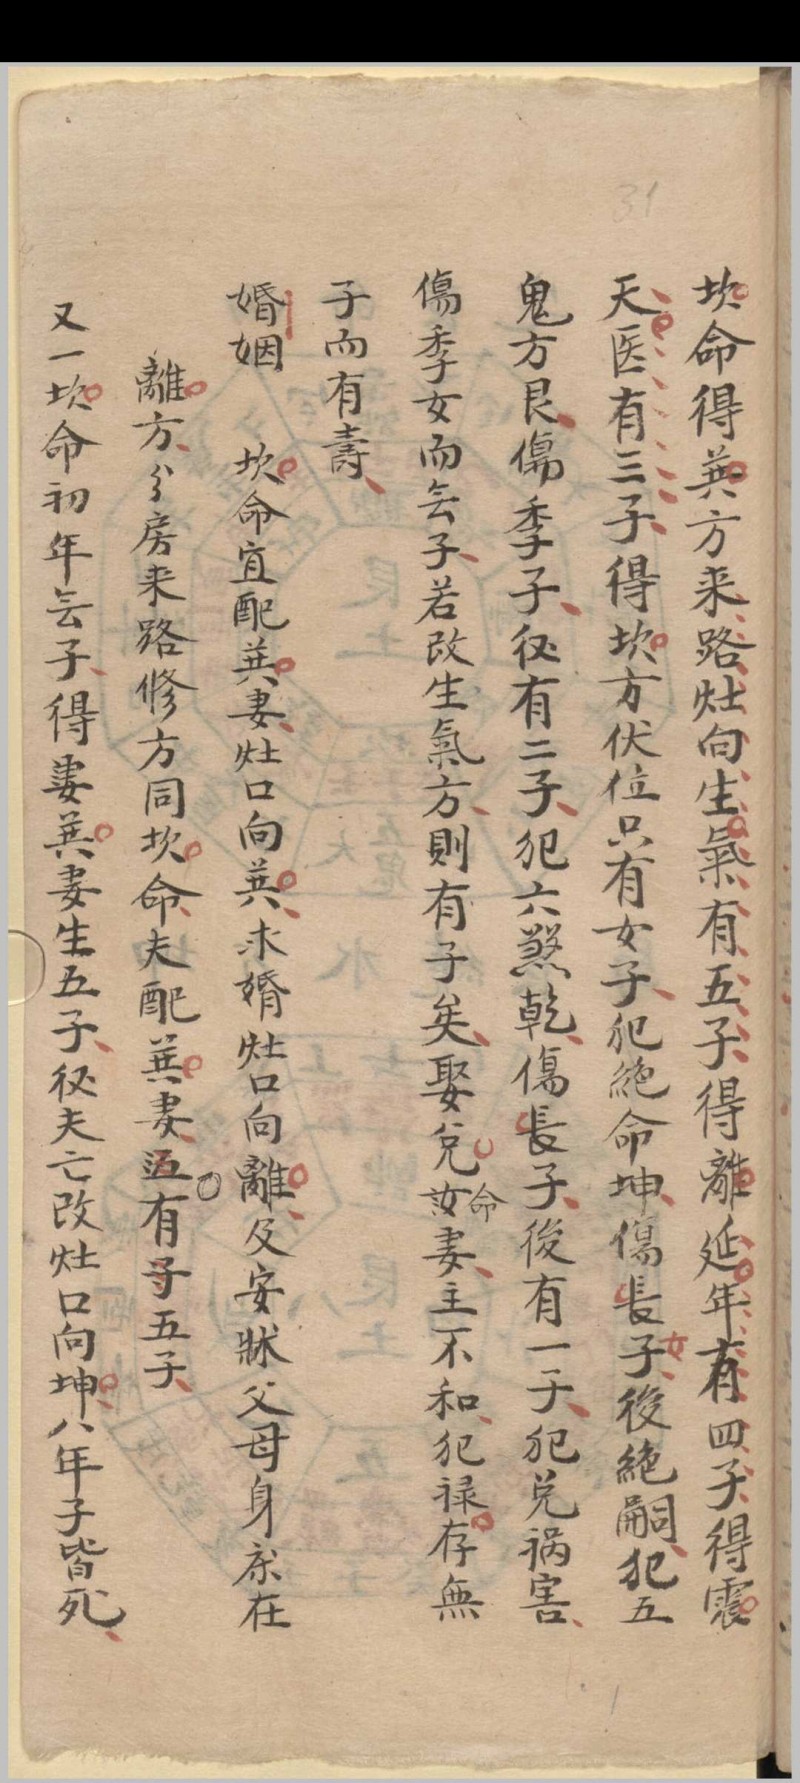 坎命得巽方来路灶向生氣有五子得離延年有四子得震
天医有三子得坎方伏位只有女子犯絶命坤傷長子女後絶嗣犯五
鬼方艮傷季子後有二子犯六煞乾傷長子後有一子犯兑祸害
傷季女而无子若改生氣方則有子矣娶兑命妻主不和犯禄存無
子而有壽
婚姻 坎命宜配巽妻灶口向巽求婚灶口向離及安牀父母身床在
離方分房来路修方同坎命夫配巽妻有子五子
又一坎命初年无子得娄巽妻生五子後夫亡改灶口向坤八年子皆死
31